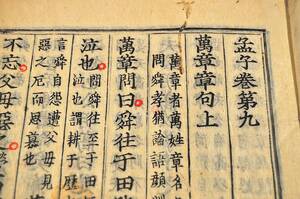 孟子卷第九
萬章章句上
萬章者萬姓章名
問舜孝猶論語顔
萬章問曰舜往于田
泣也
問舜往至于田
泣也謂耕于歷
言舜自怨遭父母見
惡之厄而思慕也
不忘父母惡